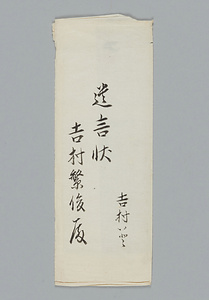 吉村
遺言状
吉村繁俊殿